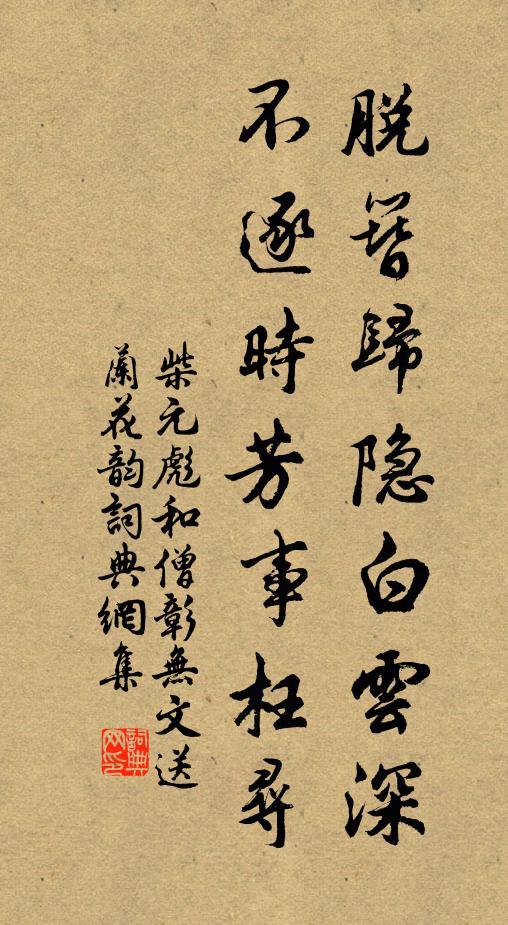 脱簪歸隐白雲深
不逐時芳事枉尋
柴元彪和僧彰無文送
蘭花韵詞典網集
詞典
网印